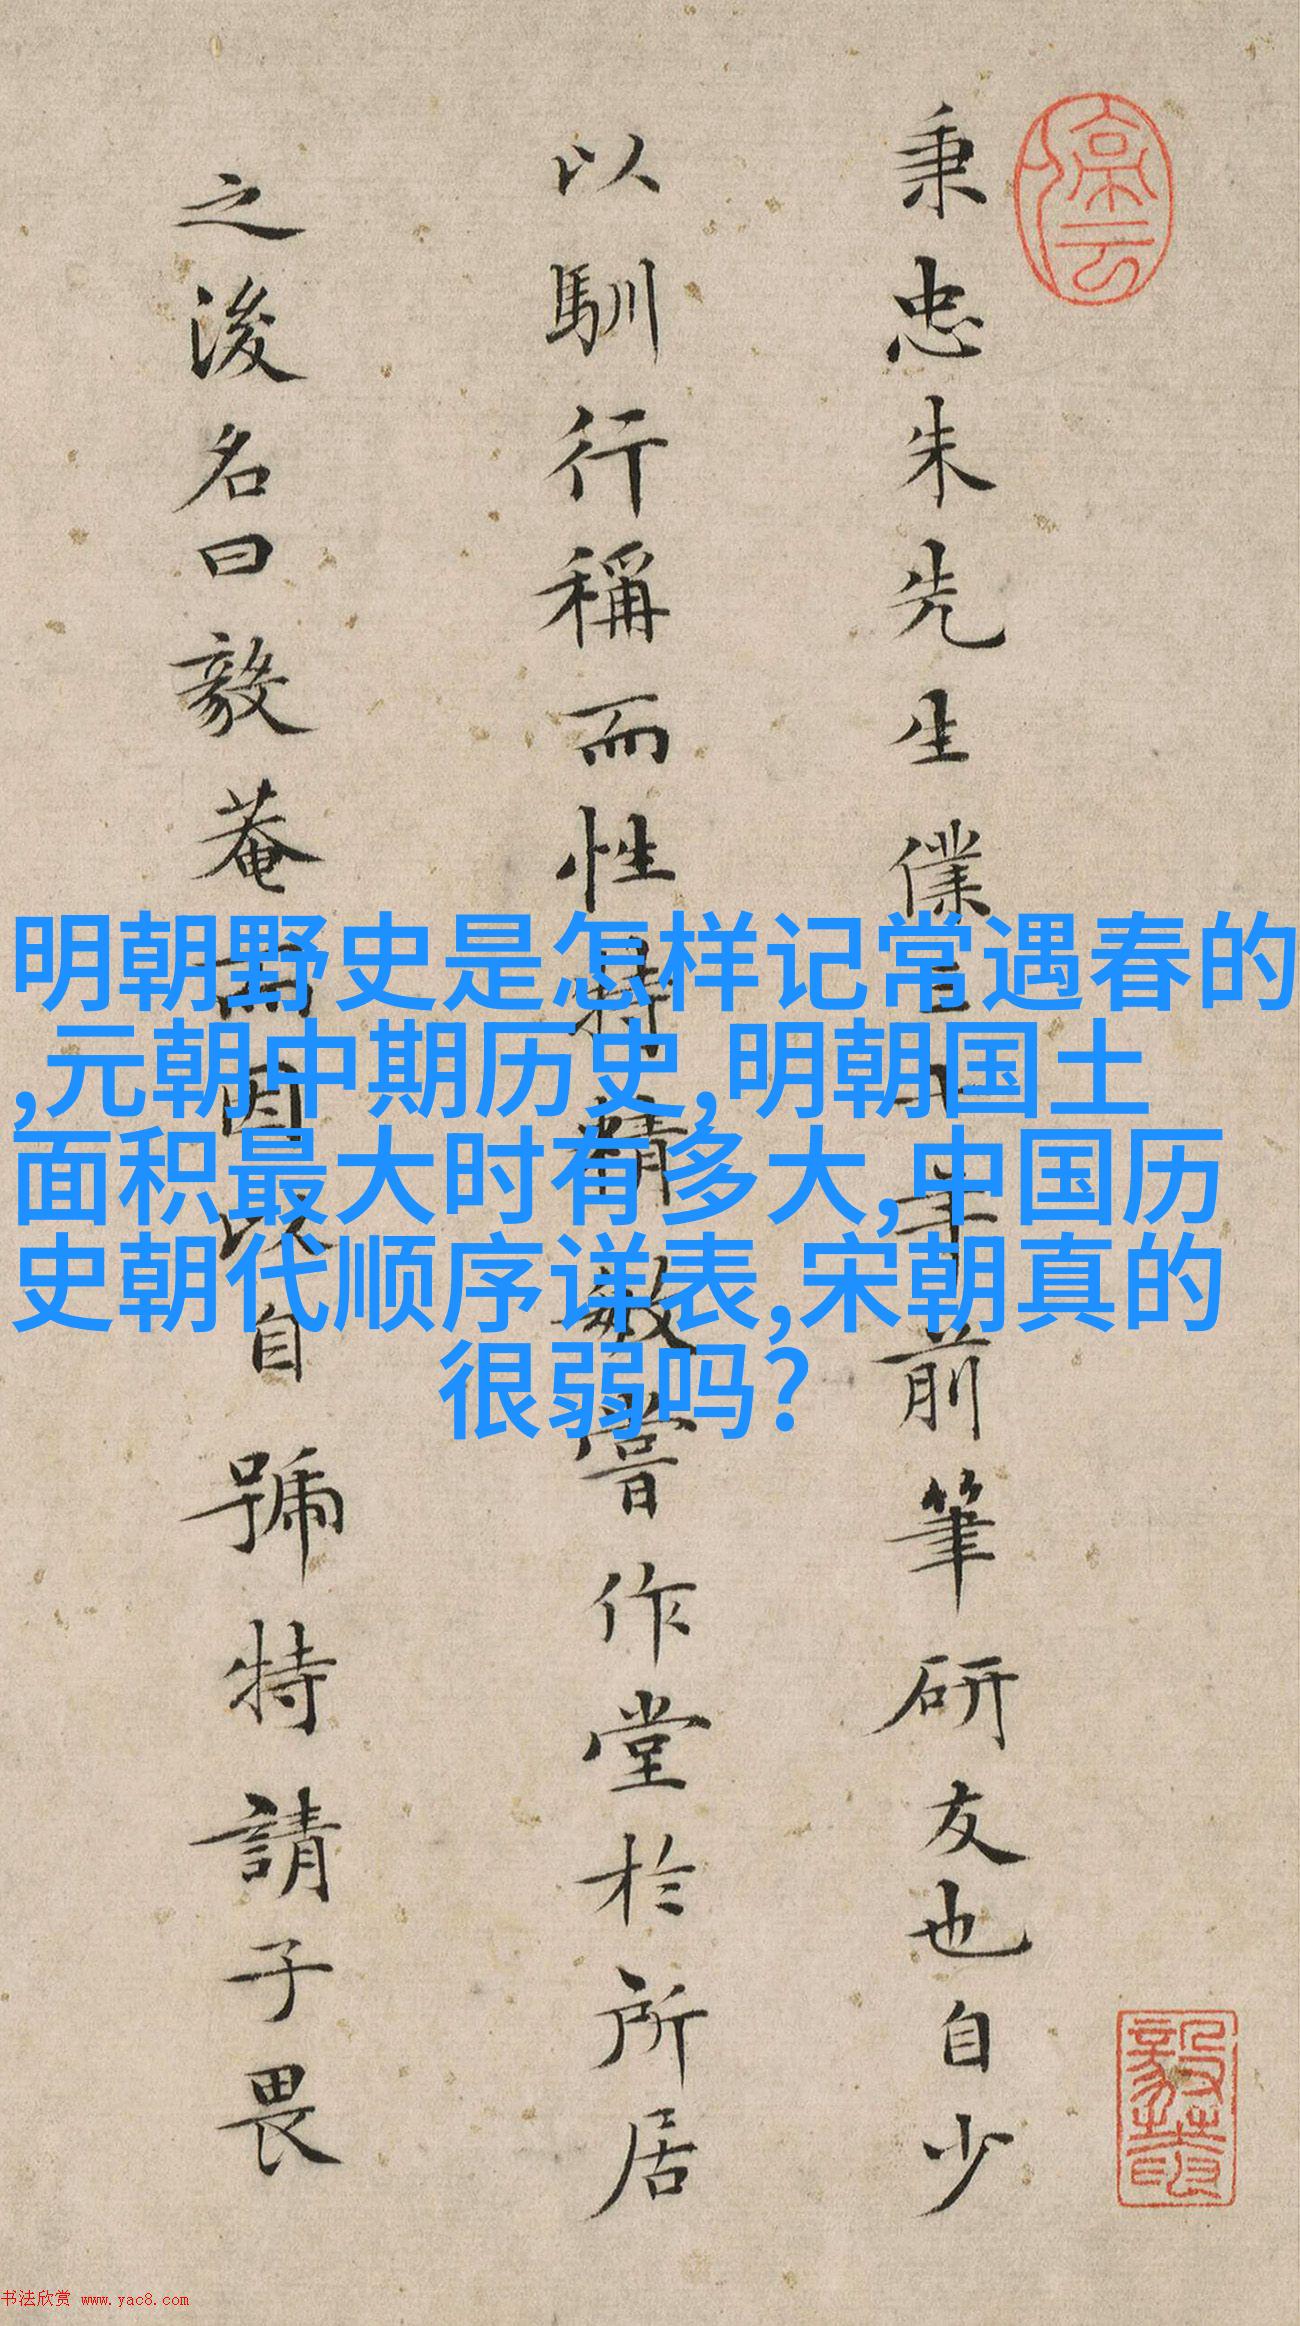 秉忠朱先生僕年前筆研友也自少
以馴行稱而性特精敏嘗作堂於所居
之後名曰毅菴而因以自號特請子畏
明朝野史是怎样记常遇春的
,元朝中期历史,明朝国土
面积最大时有多大,中国历
史朝代顺序详表,宋朝真的
很弱吗?
书法欣赏 www.yac8.com